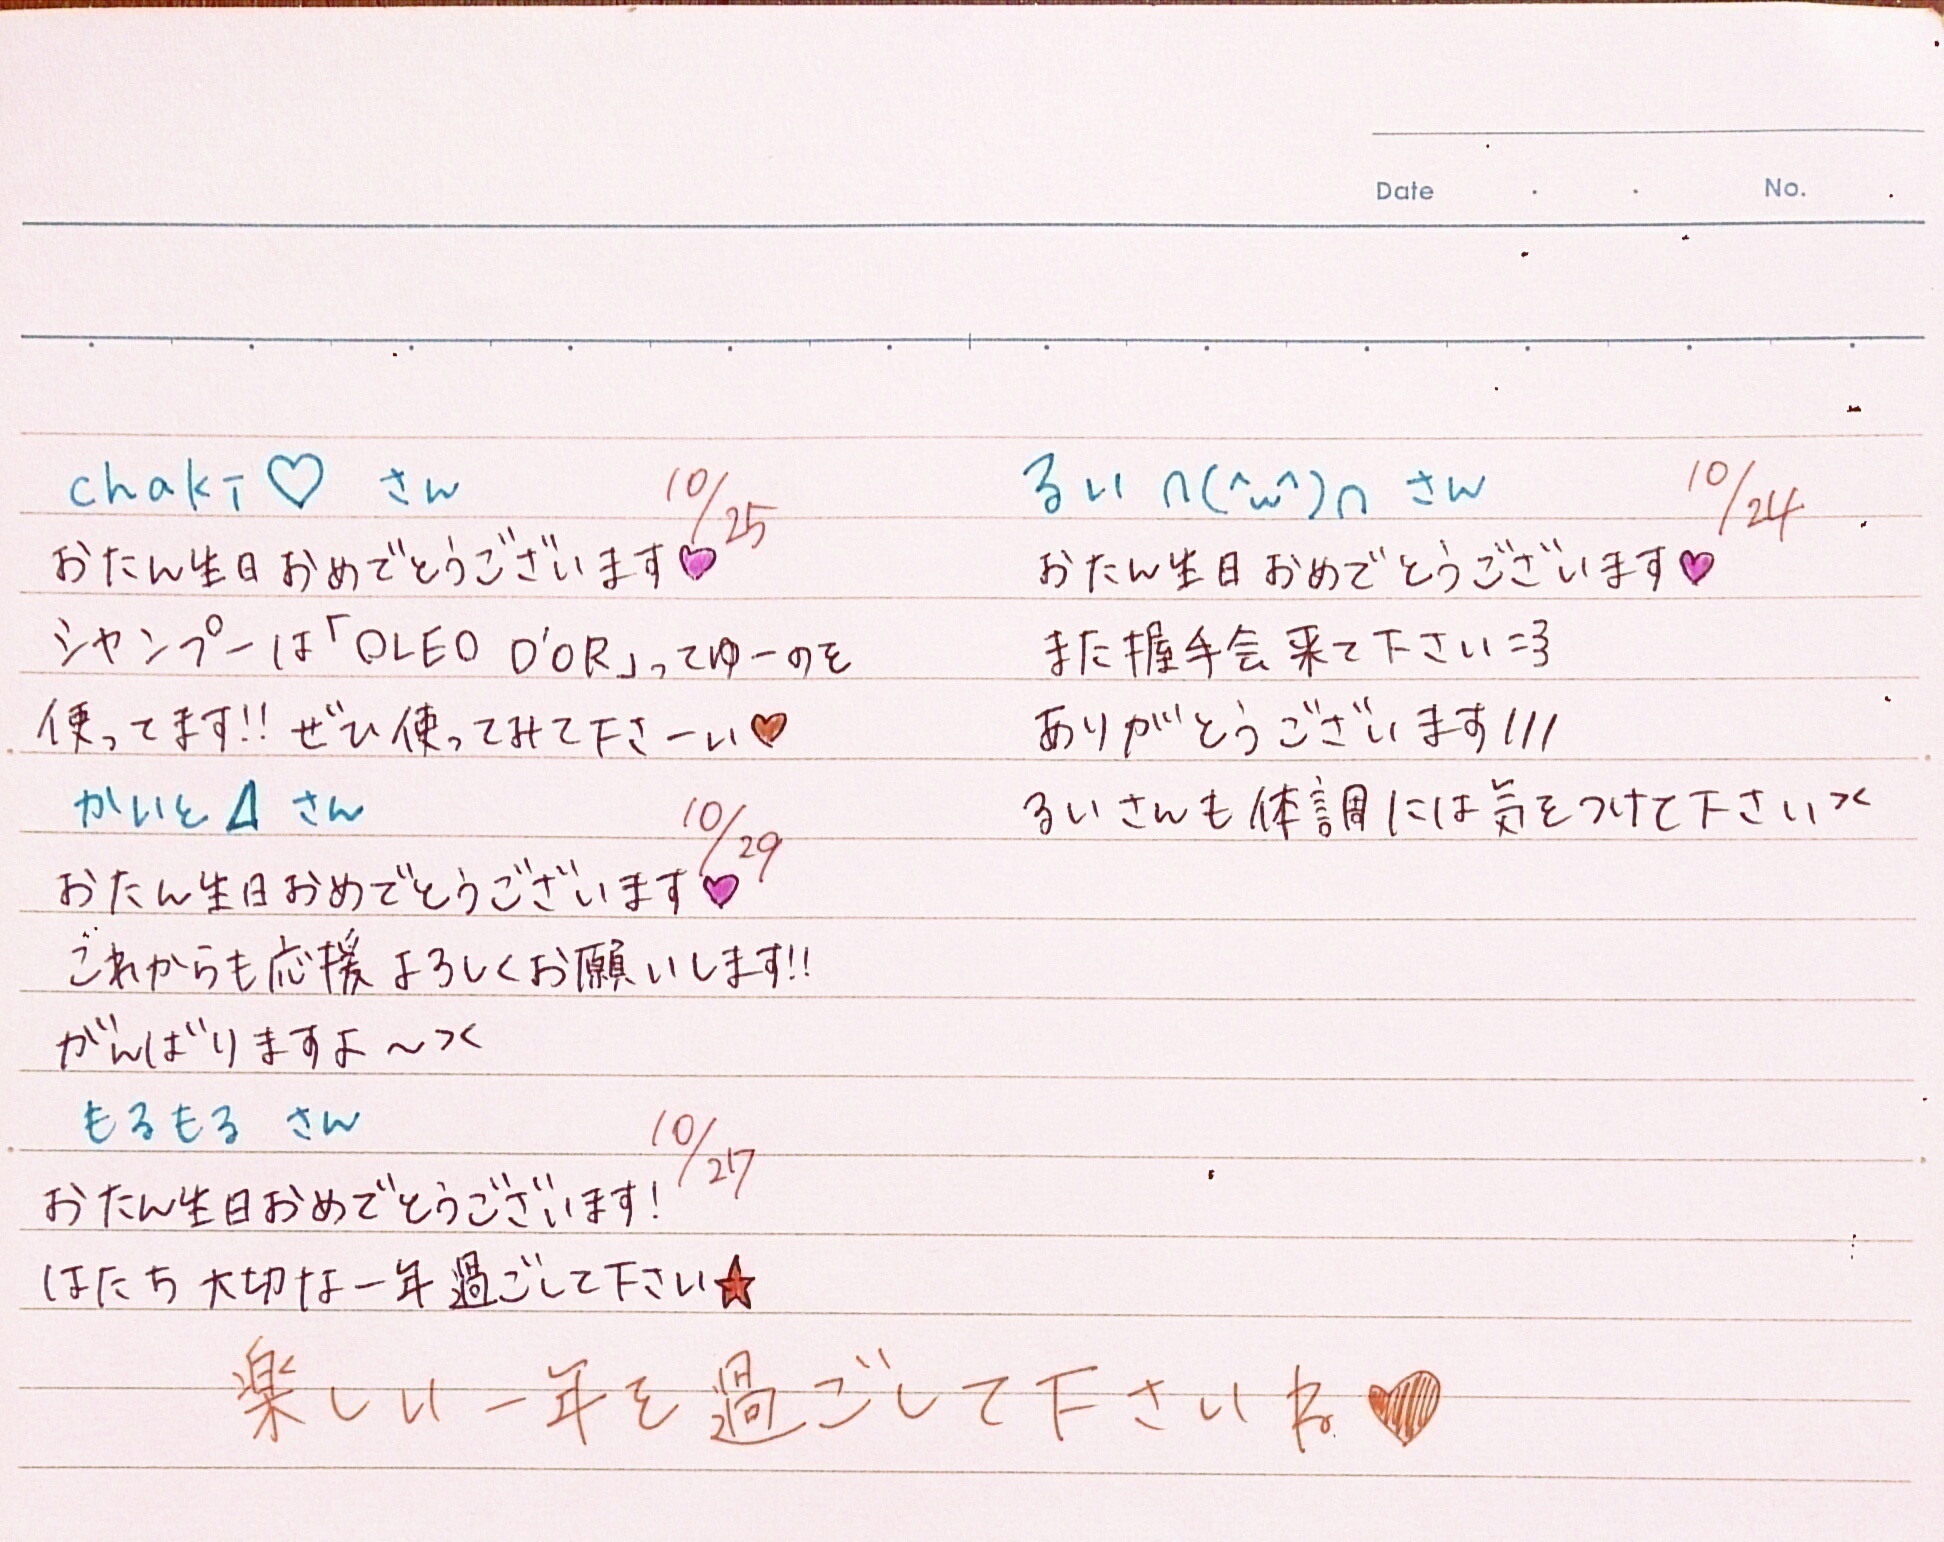 Date . . No.
chakI♡ さん 10/25
おたん生日おめでとうございます♥
シャンプーは「OLEO D'OR」ってゆーのを
使ってます!! ぜひ使ってみて下さーい♥
かいと⊿ さん 10/29
おたん生日おめでとうございます♥
これからも応援よろしくお願いします!!
がんばりますよ〜><
もるもる さん 10/27
おたん生日おめでとうございます!
はたち 大切な一年過ごして下さい★
るい ∩(^ω^)∩ さん 10/24
おたん生日おめでとうございます♥
また握手会来て下さい=3
ありがとうございます///
るいさんも体調には気をつけて下さい><
楽しい一年を過ごして下さいね♥